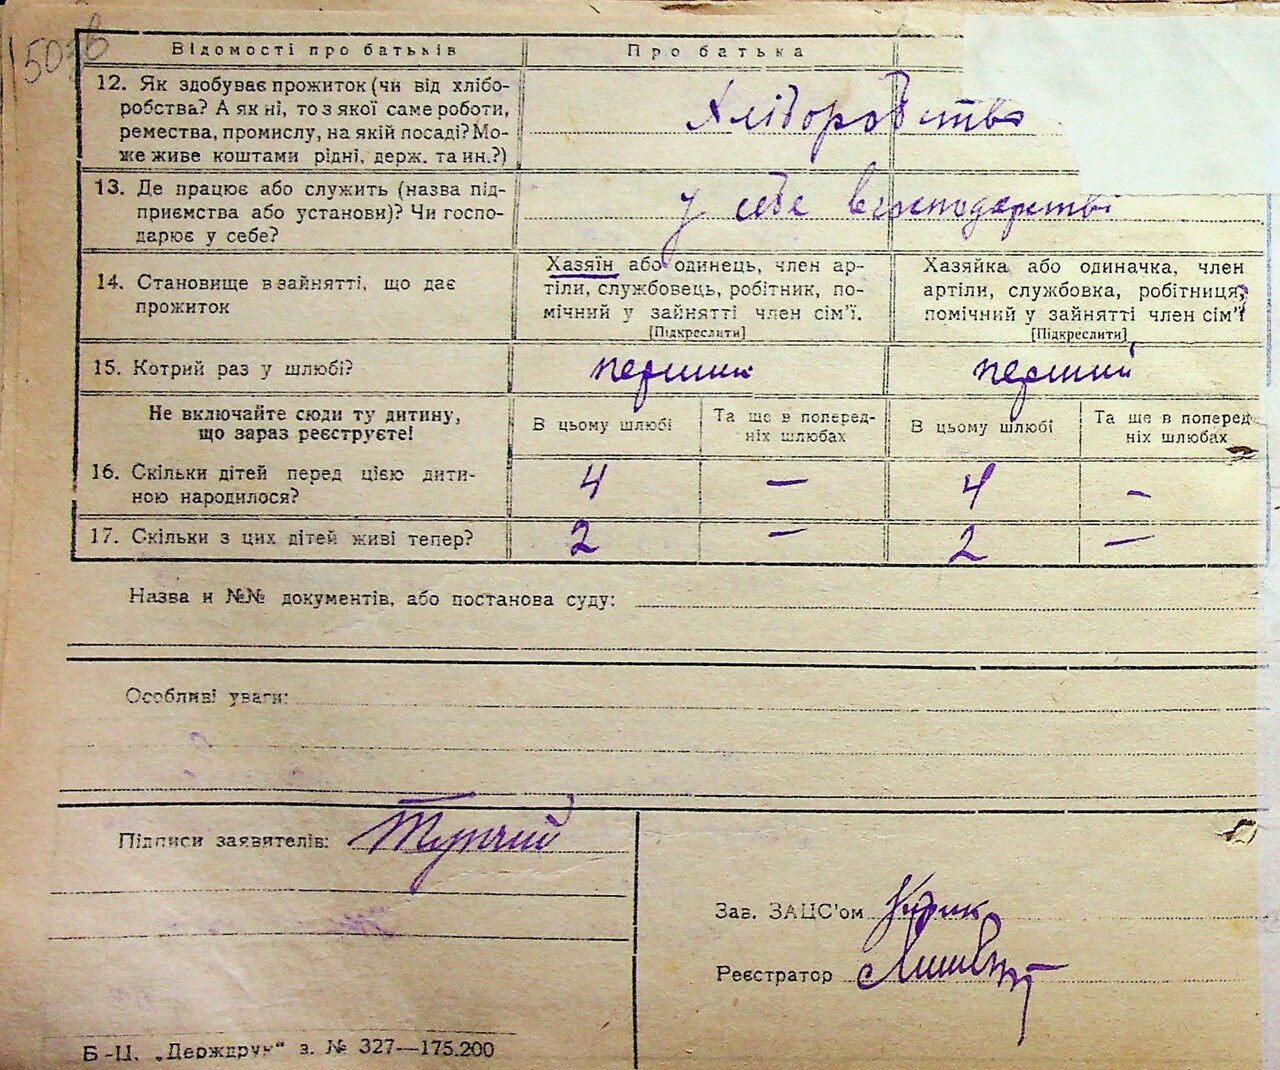 Відомості про батьків Про батька
12. Як здобуває прожиток (чи від хлібо-
робства? А як ні, то з якої саме роботи,
ремества, промислу, на якій посаді? Мо-
же живе коштами рідні, держ. та ин.?)
Хліборобство
13. Де працює або служить (назва під-
приємства або установи)? Чи госпо-
дарює у себе?
у себе в господарстві
14. Становище в зайнятті, що дає
прожиток
Хазяїн або одинець, член ар-
тіли, службовець, робітник, по-
мічний у зайнятті член сім'ї.
[Підкреслити]
Хазяйка або одиначка, член
артіли, службовка, робітниця,
помічний у зайнятті член сім'ї
[Підкреслити]
15. Котрий раз у шлюбі? перший перший
Не включайте сюди ту дитину,
що зараз реєструєте!
В цьому шлюбі
Та ще в поперед-
ніх шлюбах
В цьому шлюбі
Та ще в поперед-
ніх шлюбах
16. Скільки дітей перед цією дити-
ною народилося?
4 — 4 —
17. Скільки з цих дітей живі тепер? 2 — 2 —
Назва и №№ документів, або постанова суду:
Особливі уваги:
Підписи заявителів: Тупчий
Зав. ЗАЦС'ом
Реєстратор
Б-Ц. „Держдрук" з. № 327—175.200